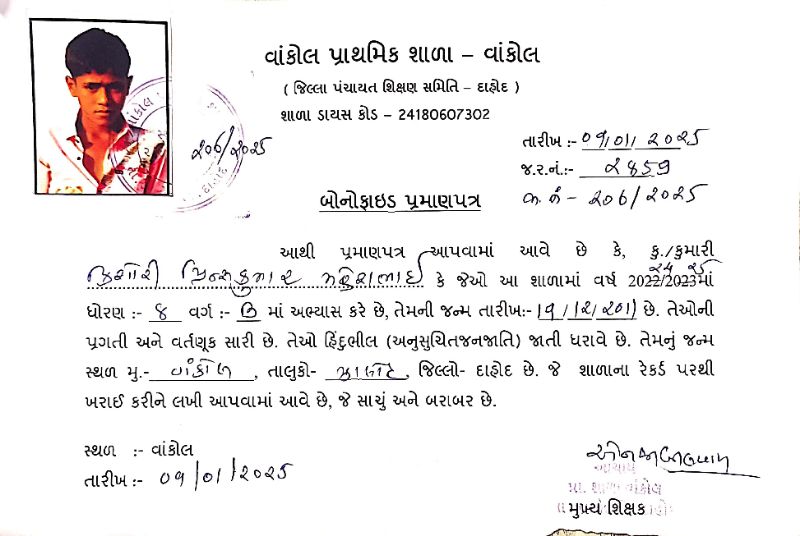 વાંકોલ પ્રાથમિક શાળા – વાંકોલ
( જિલ્લા પંચાયત શિક્ષણ સમિતિ – દાહોદ )
શાળા ડાયસ કોડ – 24180607302
તારીખ :- ૦૧/૦1/ ૨૦૨૫
જ.ર.નં.:- ૨૪૬૭
૨૦૬/૨૦૨૫
૨૦૬/૨૦૨૫
બોનોફાઇડ પ્રમાણપત્ર
આથી પ્રમાણપત્ર આપવામાં આવે છે કે, કુ./કુમારી
કિશોરી પ્રિન્સકુમાર મહેશભાઈ કે જેઓ આ શાળામાં વર્ષ 2022/2023માં ૨૪ ૨૫
ધોરણ :- ૪ વર્ગ :- માં અભ્યાસ કરે છે, તેમની જન્મ તારીખ:- છે. તેઓની
પ્રગતી અને વર્તણૂક સારી છે. તેઓ હિંદુભીલ (અનુસુચિતજનજાતિ) જાતી ધરાવે છે. તેમનું જન્મ
સ્થળ મુ.- વાંકોલ , તાલુકો- ઝાલોદ , જિલ્લો- દાહોદ છે. જે શાળાના રેકર્ડ પરથી
ખરાઈ કરીને લખી આપવામાં આવે છે, જે સાચું અને બરાબર છે.
સ્થળ :- વાંકોલ
તારીખ :- ૦૧/૦1/૨૦૨૫
આચાર્ય
પ્રા. શાળા વાંકોલ
મુખ્ય શિક્ષક